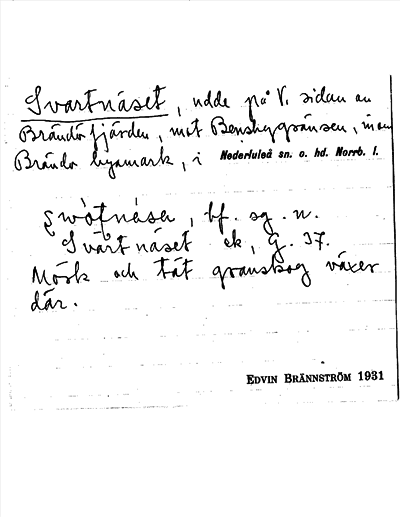 Svartnäset, udde på V. sidan av
Brändöfjärden, mot Bensbygränsen, inom
Brändö byamark, i Nederluleå sn. o. hd. Norrb. l.
bf. sg. n.
Svartnäset ek, G. 37.
Mörk och tät granskog växer
där.
EDVIN BRÄNNSTRÖM 1931